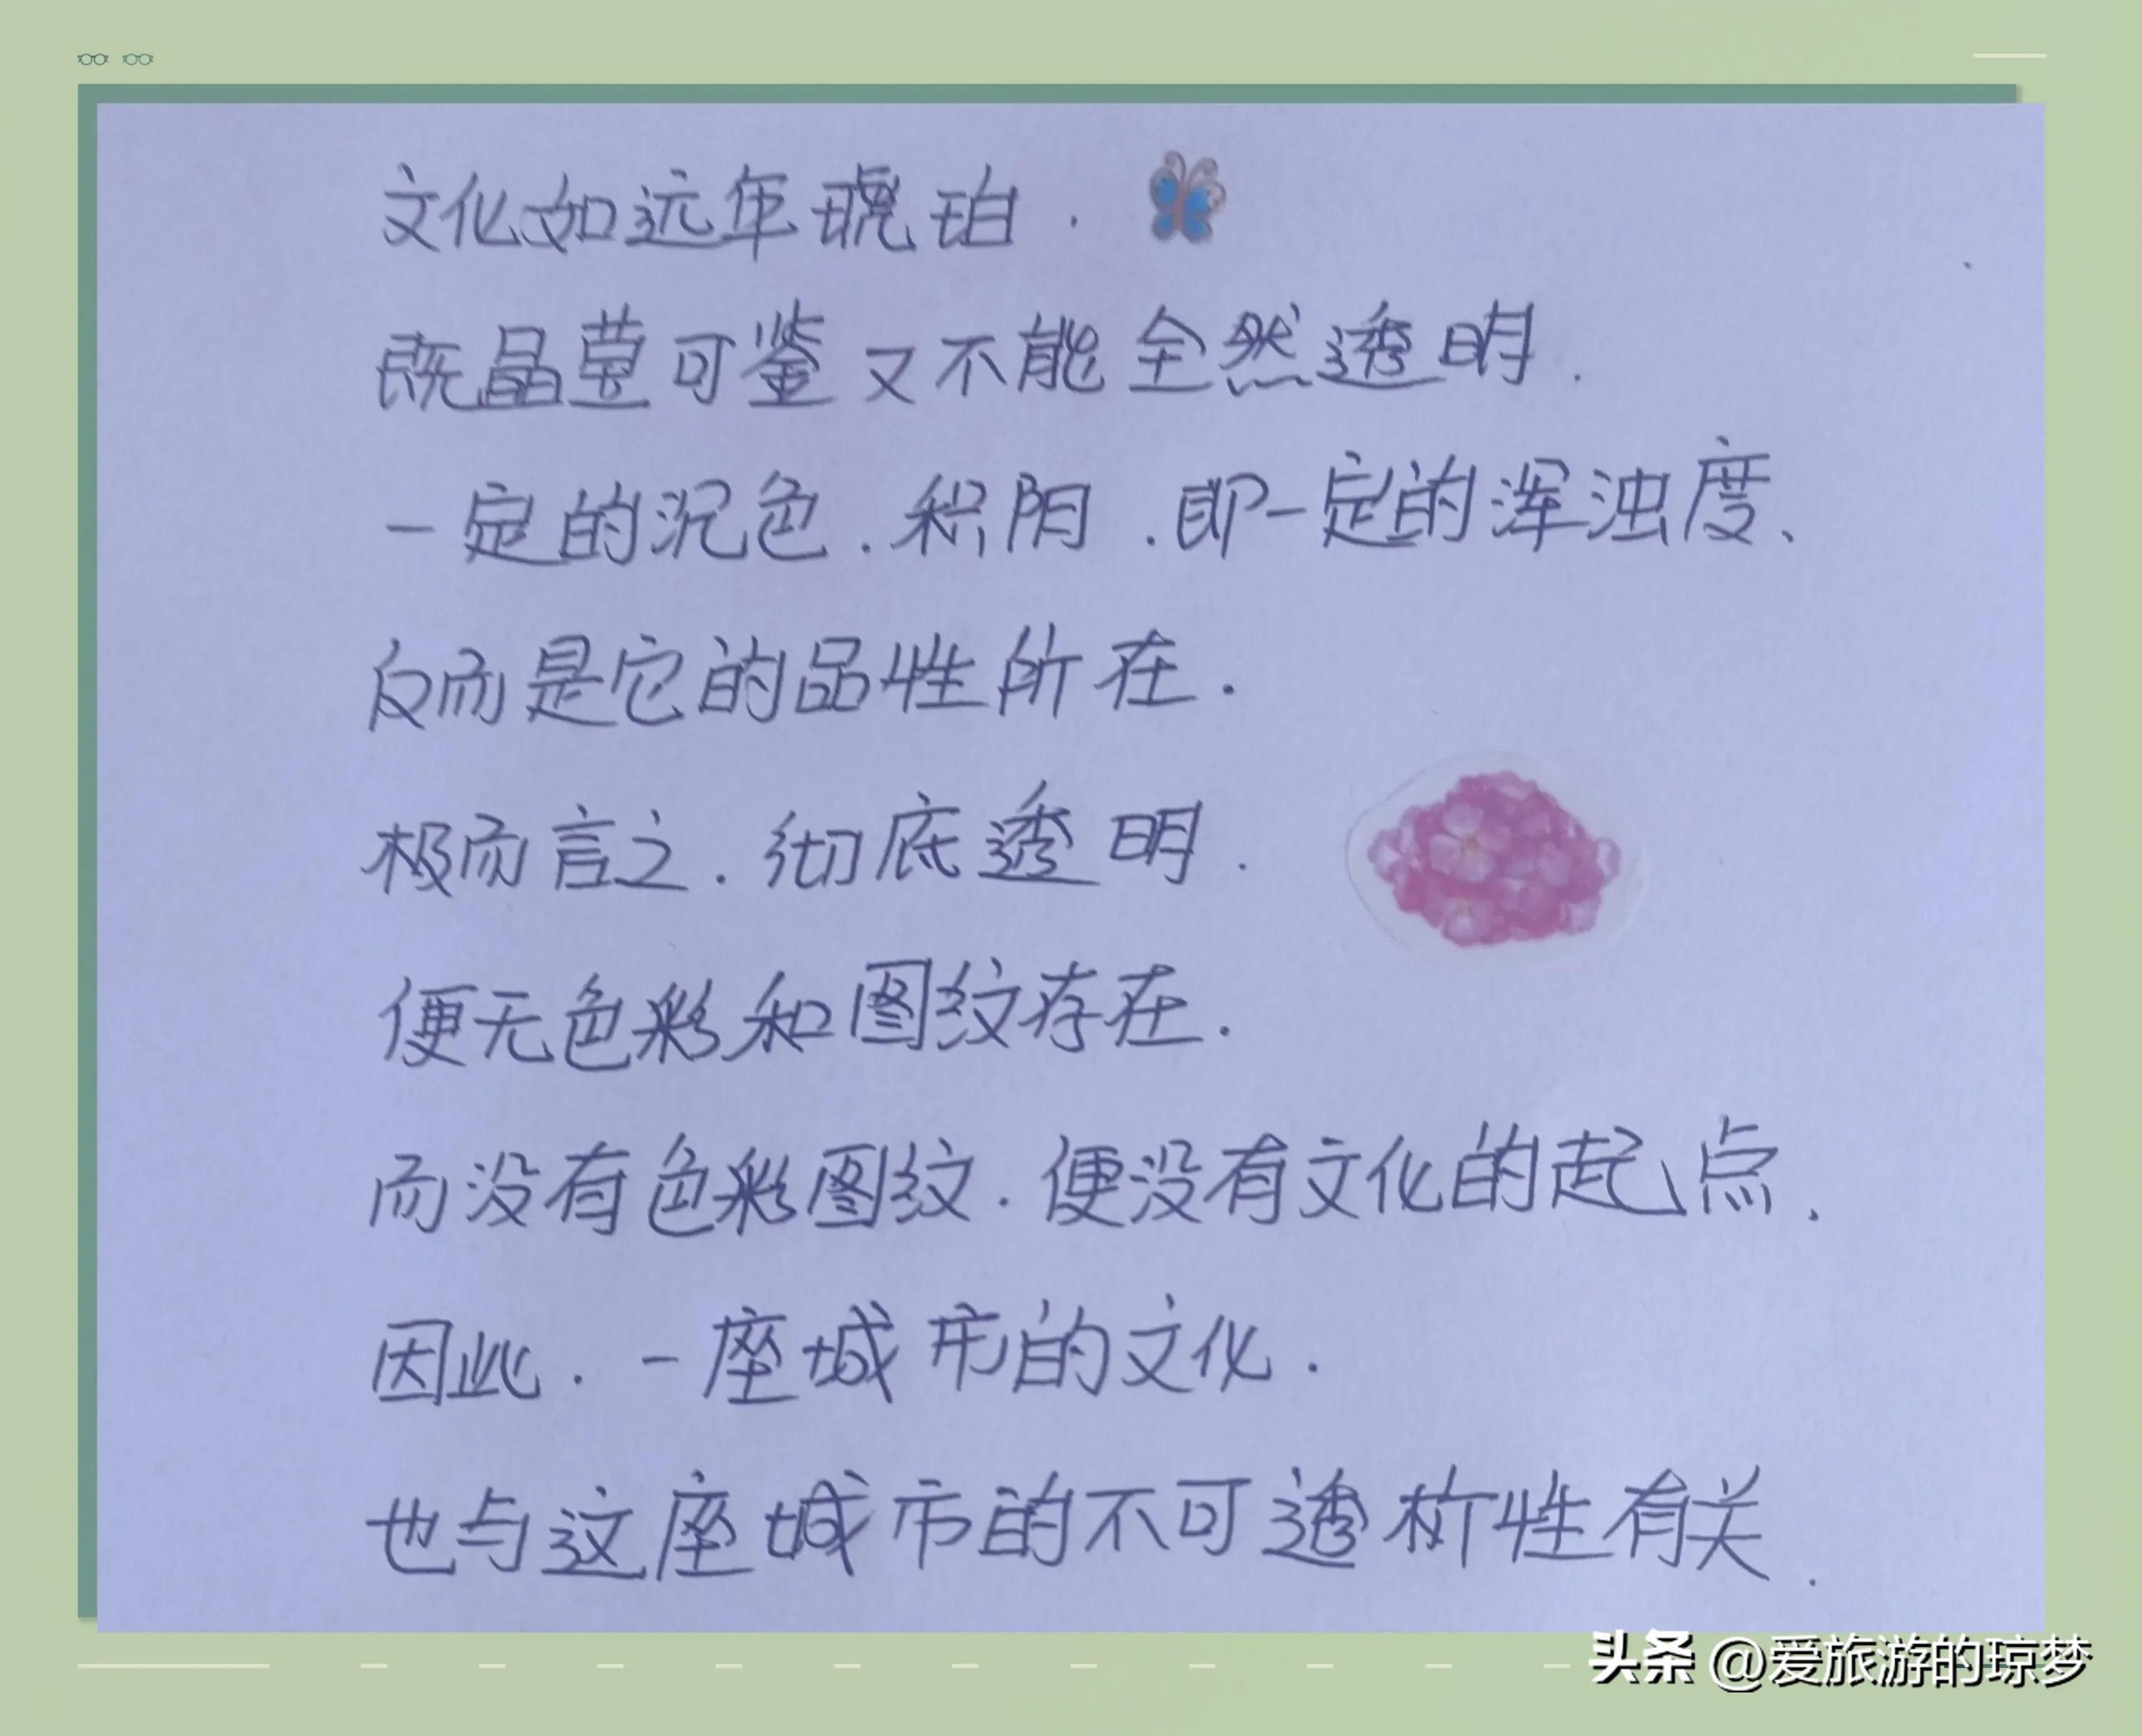 文化如远年琥珀.
既晶莹可鉴又不能全然透明.
一定的沉色.积阴.即一定的浑浊度、
反而是它的品性所在.
极而言之.彻底透明.
便无色彩和图纹存在.
而没有色彩图纹.便没有文化的起点.
因此.一座城市的文化.
也与这座城市的不可透析性有关.
头条 @爱旅游的琼梦